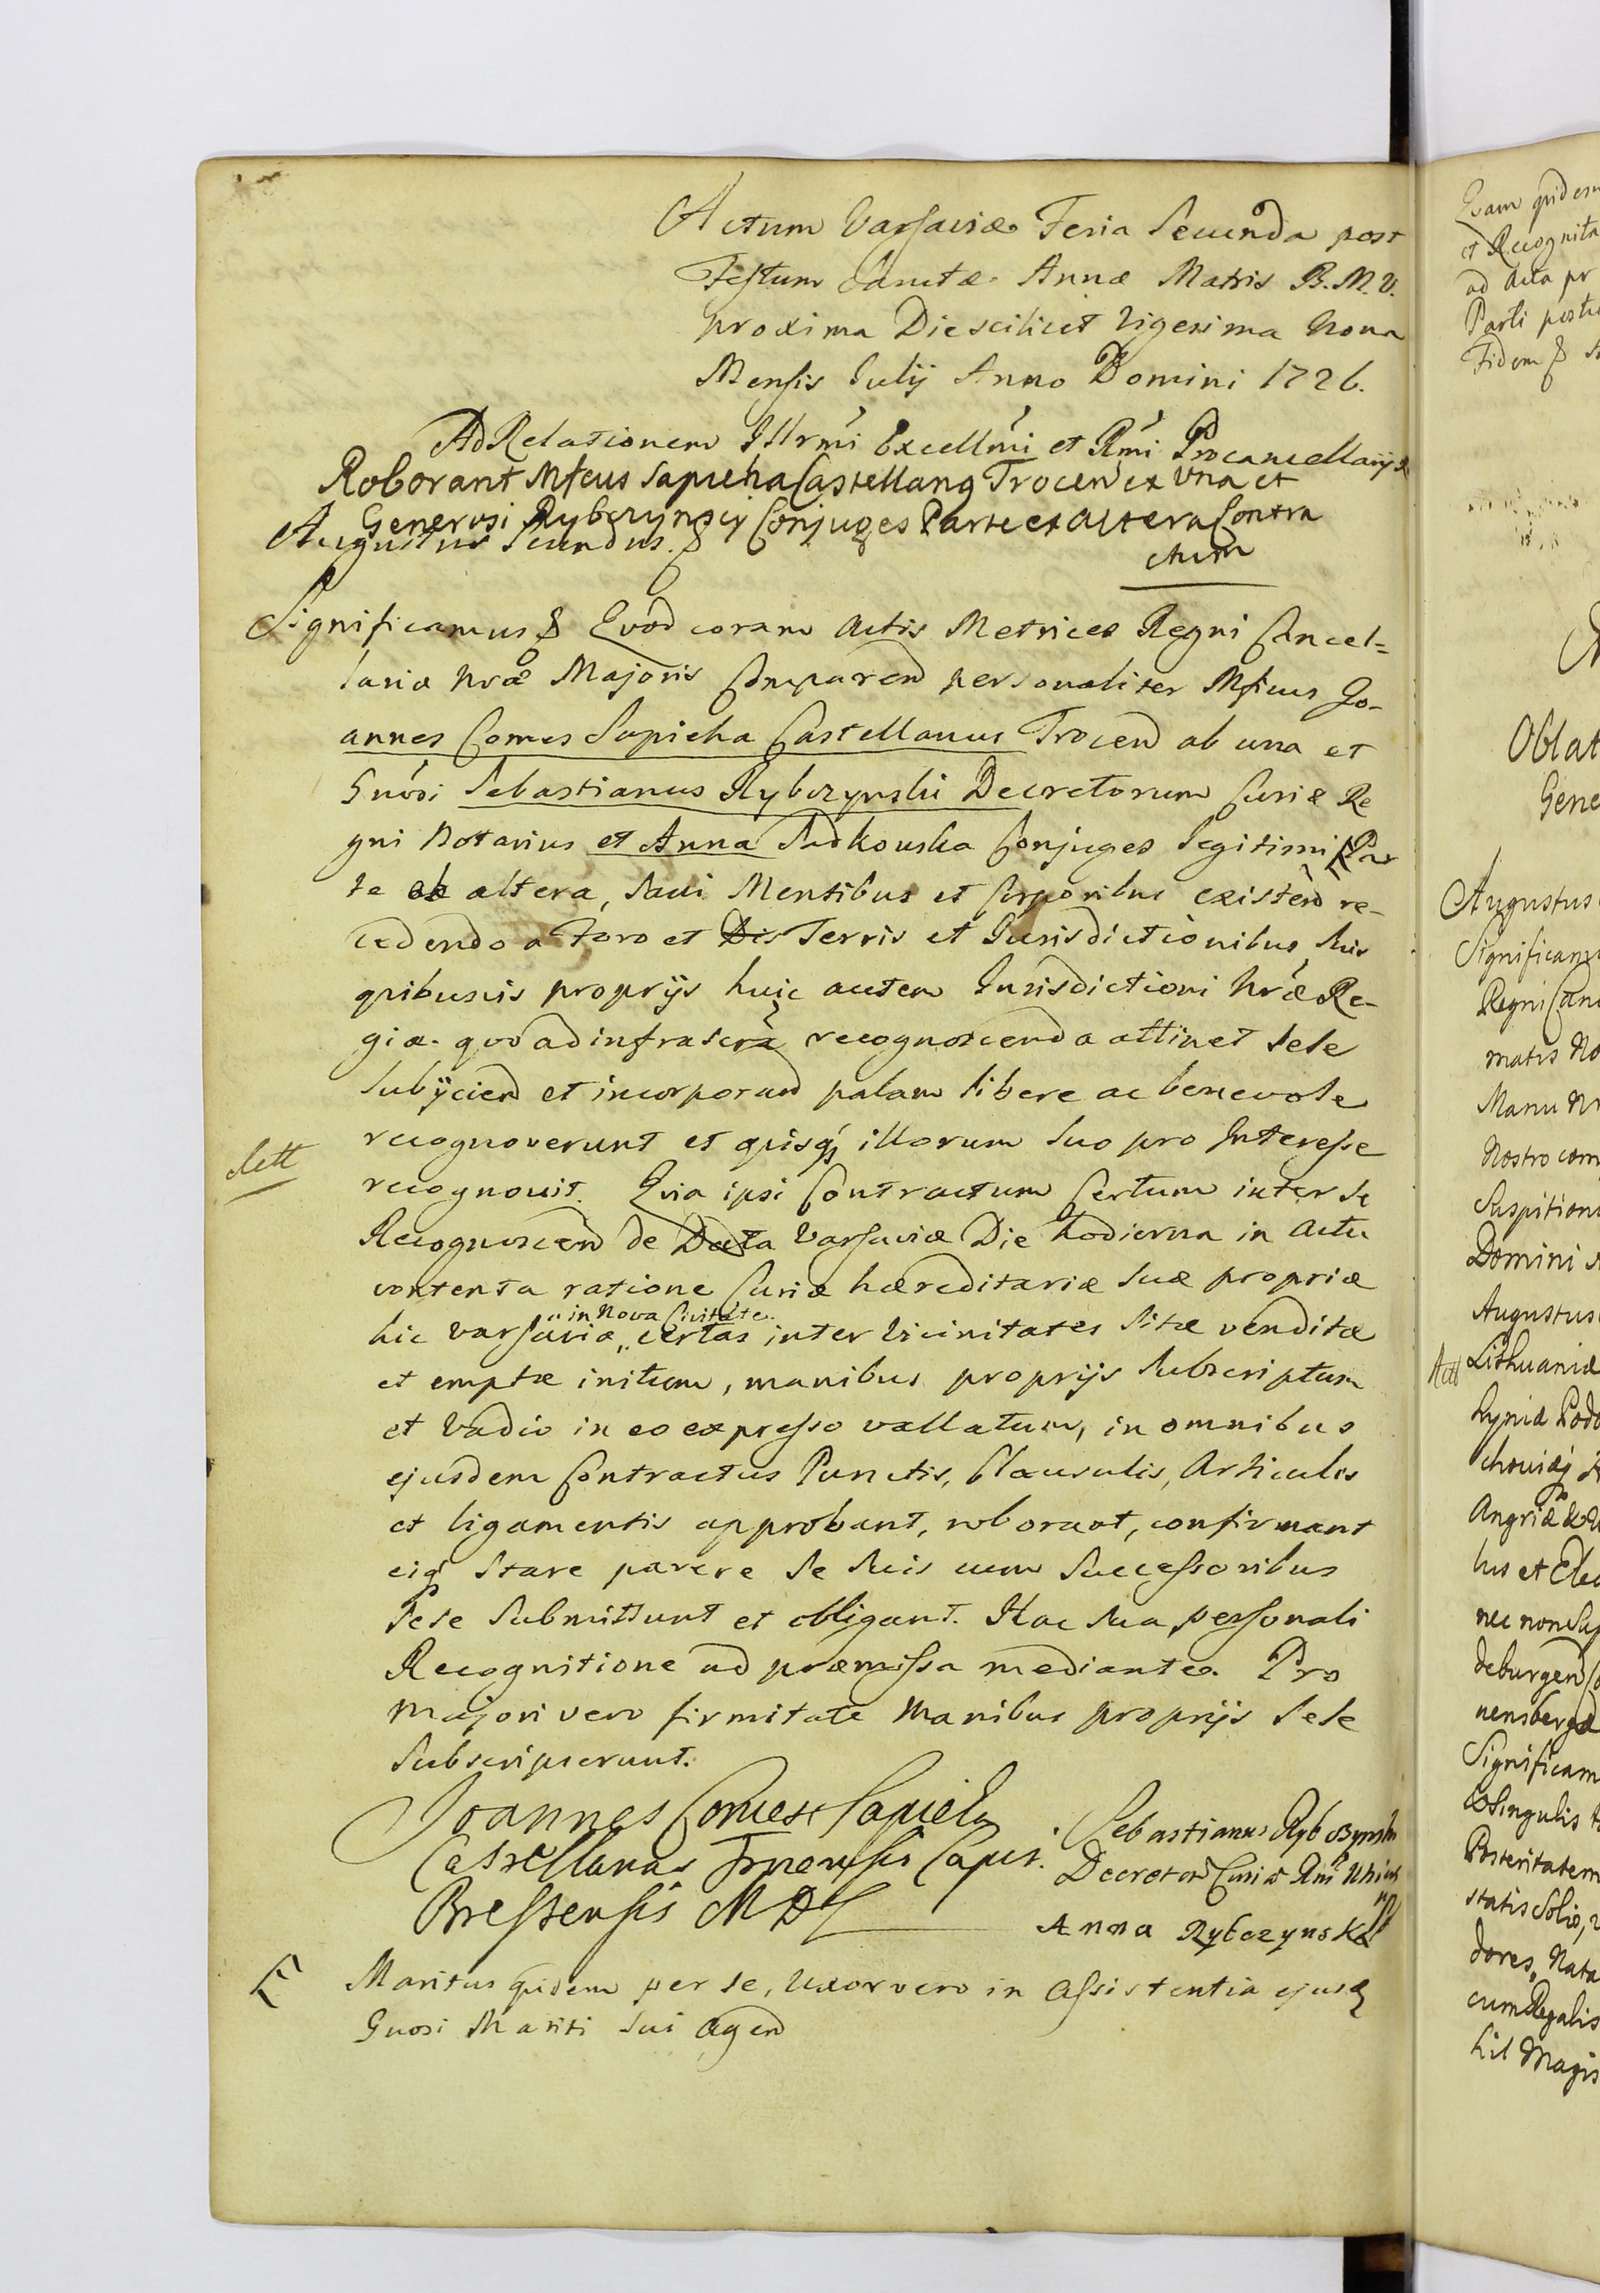 Actum Varsaviæ Feria Secunda post
Festum Sanctæ Annæ Matris B. M. V.
proxima Die scilicet Vigesima Nona
Mensis Julij Anno Domini 1726.
Ad Relationem Illrmi Excellmi et Rmi Procancellarij R
Roborant Mfcus Sapieha Castellanq Trocen ex Una et
Generosi Rybczynscij Conjuges Parte ex altera Contra
ctum
Augustus Secundus. &
Significamus & Quod coram Actis Metrices Regni Cancel=
lariæ Nræ Majoris Comparend personaliter Mficus Jo-
annes Comes Sapieha Castellanus Trocen ab una et
Gnosi Sebastianus Rybczynski Decretorum Curiæ Re
gni Notarius et Anna Sadkouska Conjuges Legitimi Par
te ab altera, Sani Mentibus et Corporibus existen re-
cedendo a Foro et Dis Terris et Jurisdictionibus Suis
quibusvis proprijs huic autem Jurisdictioni Nræ Re-
giæ quo ad infrascra recognoscenda attinet Sese
Subijcien et incorporand palam libere ac benevole
recognoverunt et quisq illorum Suo pro Interesse
recognovit. Quia ipsi Contractum Certum inter Se
Recognoscen de Data Varsaviæ Die hodierna in Actu
contenta ratione Curiæ hæreditariæ Suæ propriæ
in Nova Civitate
hic Varsaviæ „ certas inter Vicinitates Sitæ venditæ
et emptæ initum, manibus proprijs Subscriptum
et Vadio in eo expresso vallatum, in omnibus
ejusdem Contractus Punctis, Clausulis, Articulis
et ligamentis approbant, roborant, confirmant
eiq Stare parere Se Suis cum Successoribus
Sese Submittunt et obligant. Hac Sua personali
Recognitione ad præmissa mediante. Pro
Majori vero firmitate Manibus proprijs Sese
Subscripserunt.
Joannes Comes Sapieha
Castellanus Trocensis Capit.
Brestensis MDL
Sebastianus Rybczynski
Decretor Curiæ Rni
Anna Rybczynska
Maritus quidem per se, Uxor vero in Assistentia ejusd
Gnosi Mariti Sui Agen
Quam quidem
et Recognita
ad Acta pr
Parti postu
Fidem &
Oblat
Gene
Augustus
Significam
Regni Can
matis No
Manu Nr
Nostro com
Suspition
Domini
Augustus
Lithuaniæ
hyniæ Podo
Angriæ
lus et Elec
nec non Sup
deburgen
nensbergæ
Significam
Singulis
Posteritatem
statis Solio,
dores, Nata
cum Regalis
hil Magis